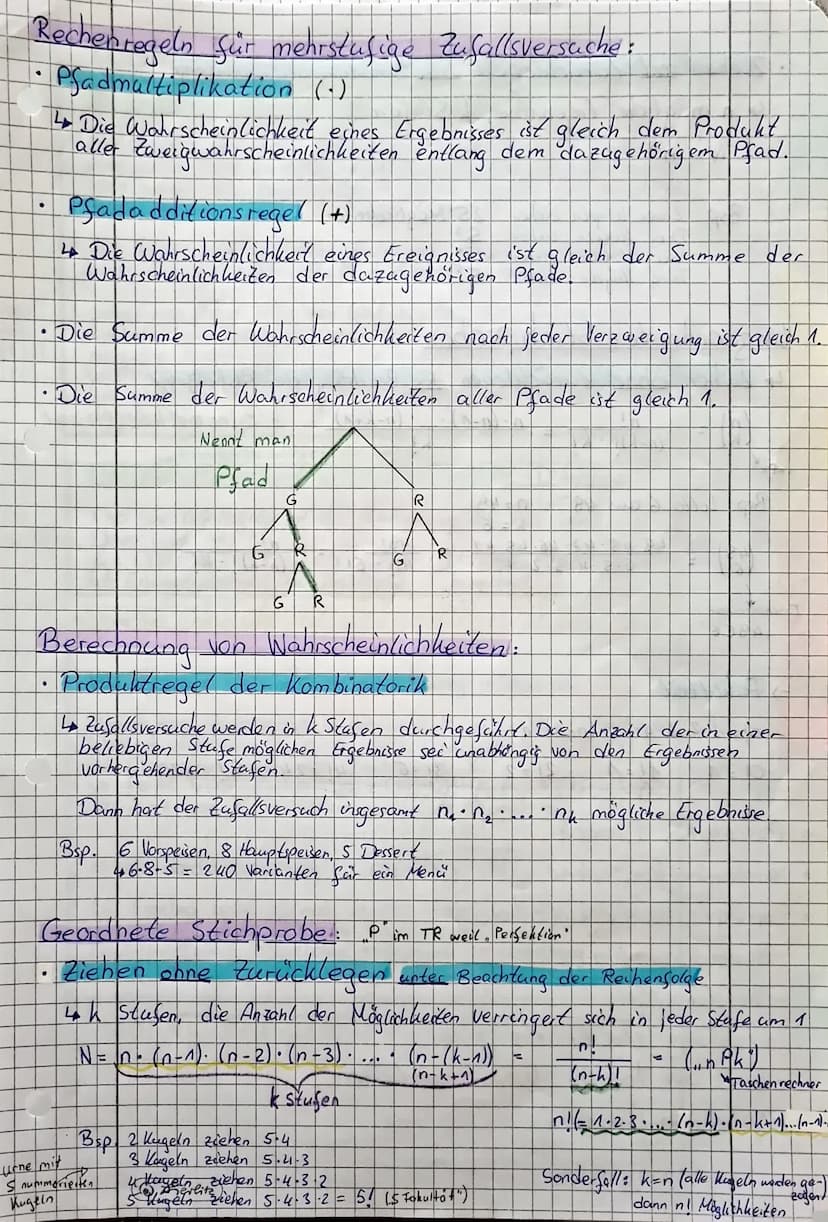 Rechenregeln für mehrstufige Zufallsversuche:
• Pfadmultiplikation (·)
↳ Die Wahrscheinlichkeit eines Ergebnisses ist gleich dem Produkt
aller Zweigwahrscheinlichkeiten entlang dem dazugehörigem Pfad.
• Pfadadditionsregel (+)
↳ Die Wahrscheinlichkeit eines Ereignisses ist gleich der Summe der
Wahrscheinlichkeiten der dazugehörigen Pfade.
• Die Summe der Wahrscheinlichkeiten nach jeder Verzweigung ist gleich 1.
• Die Summe der Wahrscheinlichkeiten aller Pfade ist gleich 1.
Nennt man
Pfad
G R
G R G R
G R
Berechnung von Wahrscheinlichkeiten:
• Produktregel der Kombinatorik
↳ Zufallsversuche werden in k Stufen durchgeführt. Die Anzahl der in einer
beliebigen Stufe möglichen Ergebnisse sei unabhängig von den Ergebnissen
vorhergehender Stufen.
Dann hat der Zufallsversuch insgesamt n₁ · n₂ · ... · nₖ mögliche Ergebnisse.
Bsp. 6 Vorspeisen, 8 Hauptspeisen, 5 Dessert
↳ 6·8·5 = 240 Varianten für ein Menü
Geordnete Stichprobe: „P" im TR weil „Perfektion"
• Ziehen ohne Zurücklegen unter Beachtung der Reihenfolge
↳ k Stufen, die Anzahl der Möglichkeiten verringert sich in jeder Stufe um 1
N = n · (n-1) · (n-2) · (n-3) · ... · (n-(k-1)) = n!/(n-k)! = („nPk")
(n-k+1)
Taschenrechner
k Stufen
n! (= 1·2·3·...·(n-k)·(n-k+1)...(n-1)·
Bsp. 2 Kugeln ziehen 5·4
3 Kugeln ziehen 5·4·3
4 Kugeln ziehen 5·4·3·2
5 Kugeln ziehen 5·4·3·2 = 5! („5 Fakultät")
Urne mit
5 nummerierten
Kugeln
Sonderfall: k=n (alle Kugeln werden ge-
zogen)
dann n! Möglichkeiten